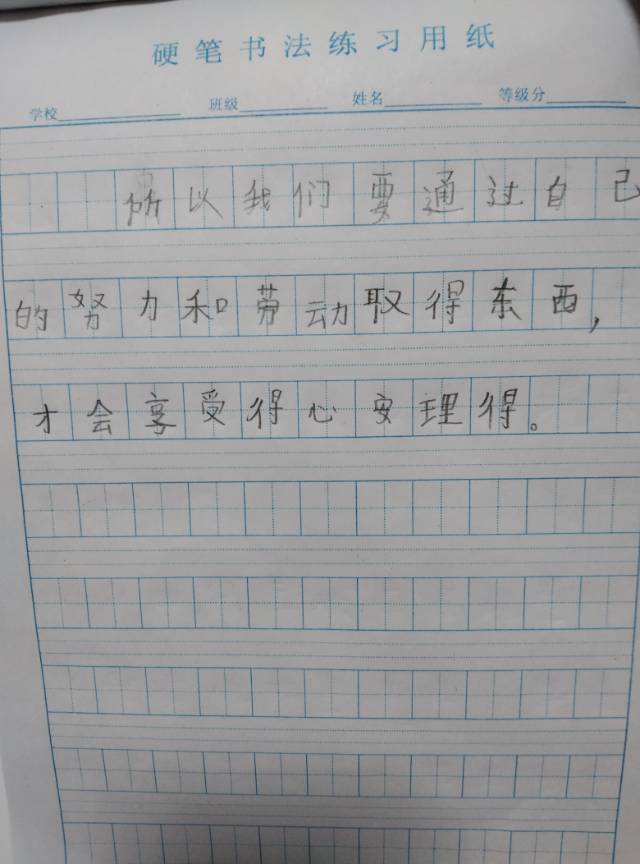 硬笔书法练习用纸
学校 班级 姓名 等级分
所以我们要通过自己
的努力和劳动取得东西,
才会享受得心安理得。